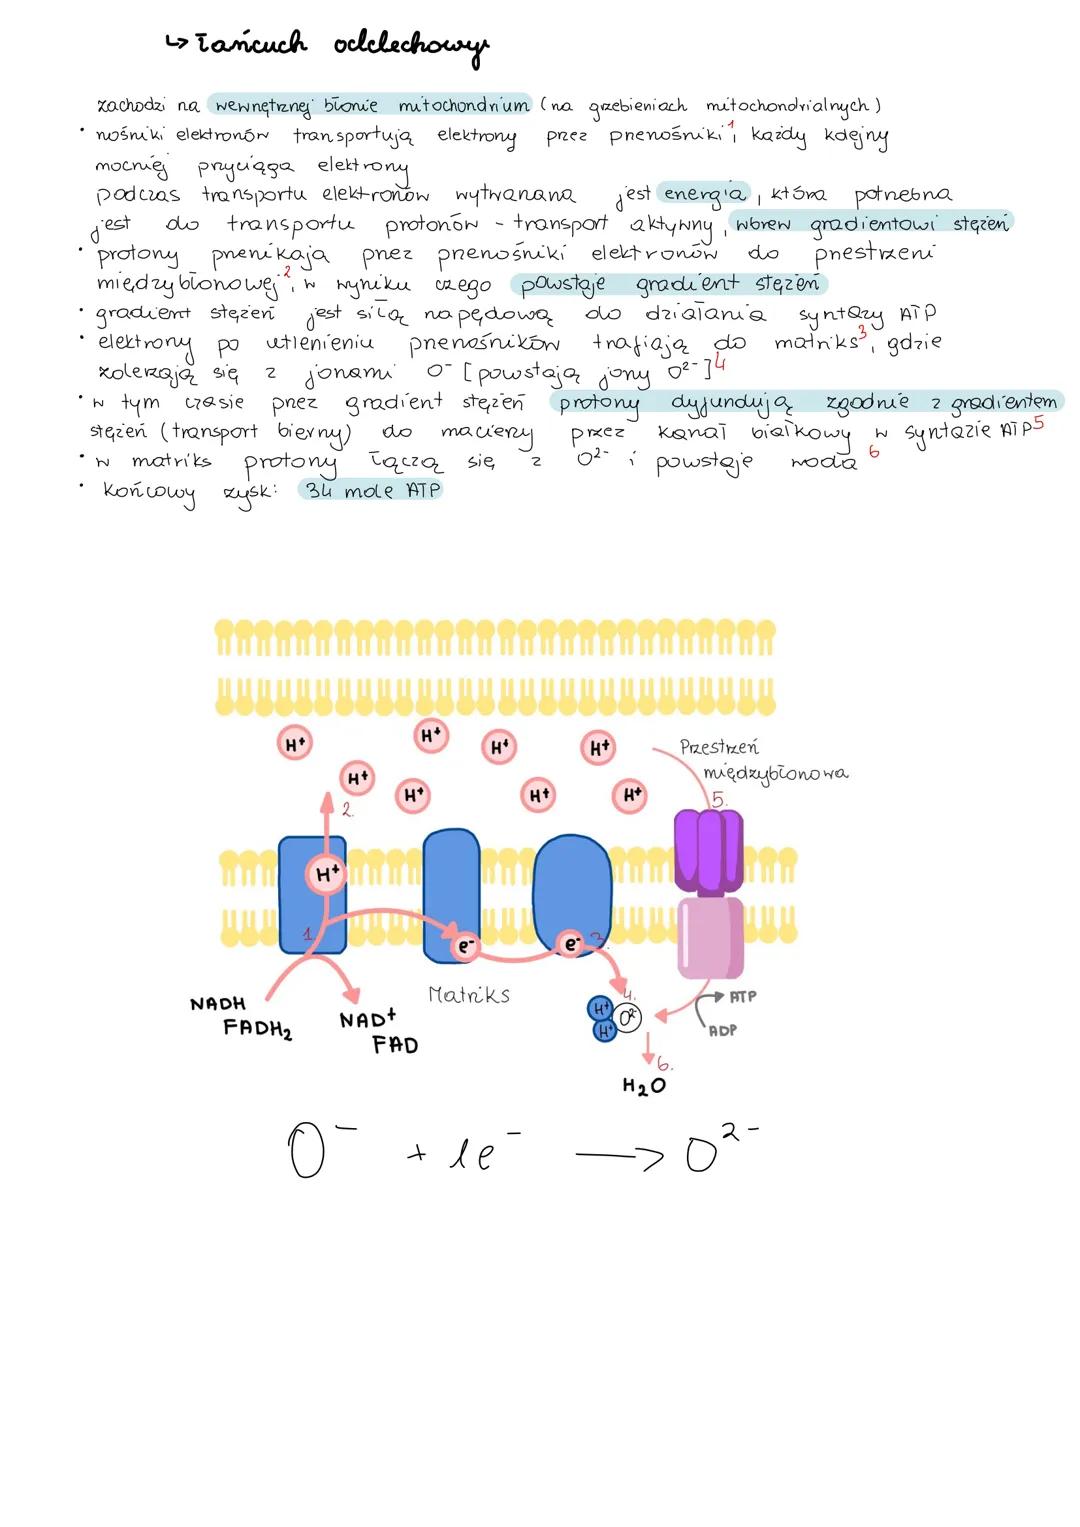 ↳ Łańcuch oddechowy
zachodzi na wewnętrznej błonie mitochondrium (na grzebieniach mitochondrialnych)
• nośniki elektronów transportują elektrony przez przenośniki¹, każdy kolejny
mocniej przyciąga elektrony
podczas transportu elektronów wytwarzana jest energia, która potrzebna
jest do transportu protonów - transport aktywny, wbrew gradientowi stężeń
• protony przenikają przez przenośniki elektronów do przestrzeni
międzybłonowej², w wyniku czego powstaje gradient stężeń
• gradient stężeń jest siłą napędową do działania syntazy ATP
• elektrony po utlenieniu przenośników trafiają do matriks³, gdzie
zderzają się z jonami O⁻ [powstają jony O²⁻]⁴
• w tym czasie przez gradient stężeń protony dyfundują zgodnie z gradientem
stężeń (transport bierny) do macierzy przez kanał białkowy w syntazie ATP⁵
• w matriks protony łączą się z O²⁻ i powstaje woda ⁶
• końcowy zysk: 34 mole ATP
H⁺ H⁺ H⁺ H⁺
Przestrzeń
międzybłonowa
H⁺ H⁺ H⁺ H⁺
2. 5.
H⁺
1. e⁻ e⁻ 3.
Matriks
NADH
FADH₂
NAD⁺
FAD
4.
H⁺ O²⁻
H⁺
ATP
ADP
6.
H₂O
O⁻ + 1e⁻ ⟶ O²⁻